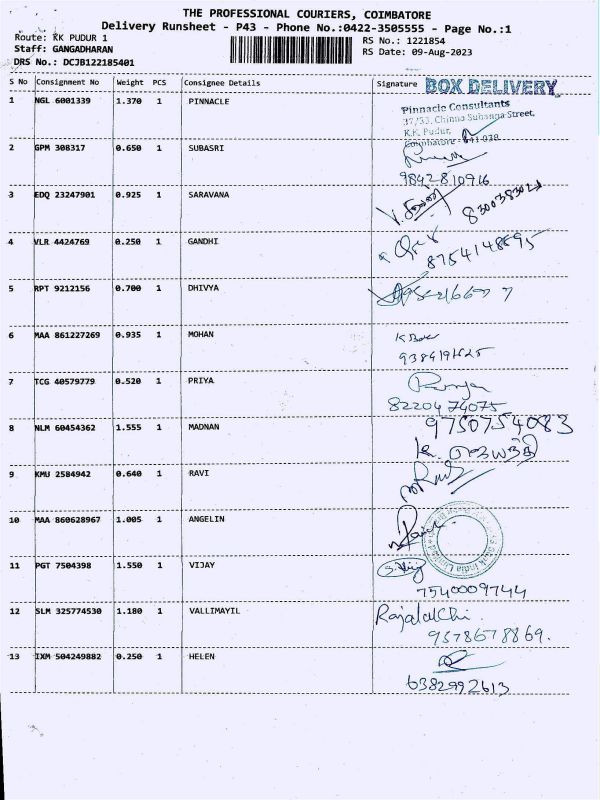 THE PROFESSIONAL COURIERS, COIMBATORE
Delivery Runsheet - P43 - Phone No.:0422-3505555 - Page No.:1
Route: KK PUDUR 1
RS No.: 1221854
Staff: GANGADHARAN
RS Date: 09-Aug-2023
DRS No.: DCJB122185401
S No Consignment No Weight PCS Consignee Details Signature BOX DELIVERY
1 NGL 6001339 1.370 1 PINNACLE
Pinnacle Consultants
37/33, Chinna Subanga Street,
K.K. Pudur,
Coimbatore - 641 038
2 GPM 308317 0.650 1 SUBASRI
9842810916
3 EDQ 23247901 0.925 1 SARAVANA
4 VLR 4424769 0.250 1 GANDHI
5 RPT 9212156 0.700 1 DHIVYA
6 MAA 861227269 0.935 1 MOHAN
7 TCG 40579779 0.520 1 PRIYA
8220474075
8 NLM 60454362 1.555 1 MADNAN
9750754083
9 KMU 2584942 0.640 1 RAVI
10 MAA 860628967 1.005 1 ANGELIN
11 PGT 7504398 1.550 1 VIJAY
7540009744
12 SLM 325774530 1.180 1 VALLIMAYIL
9578678869.
13 IXM 504249882 0.250 1 HELEN
6382992613